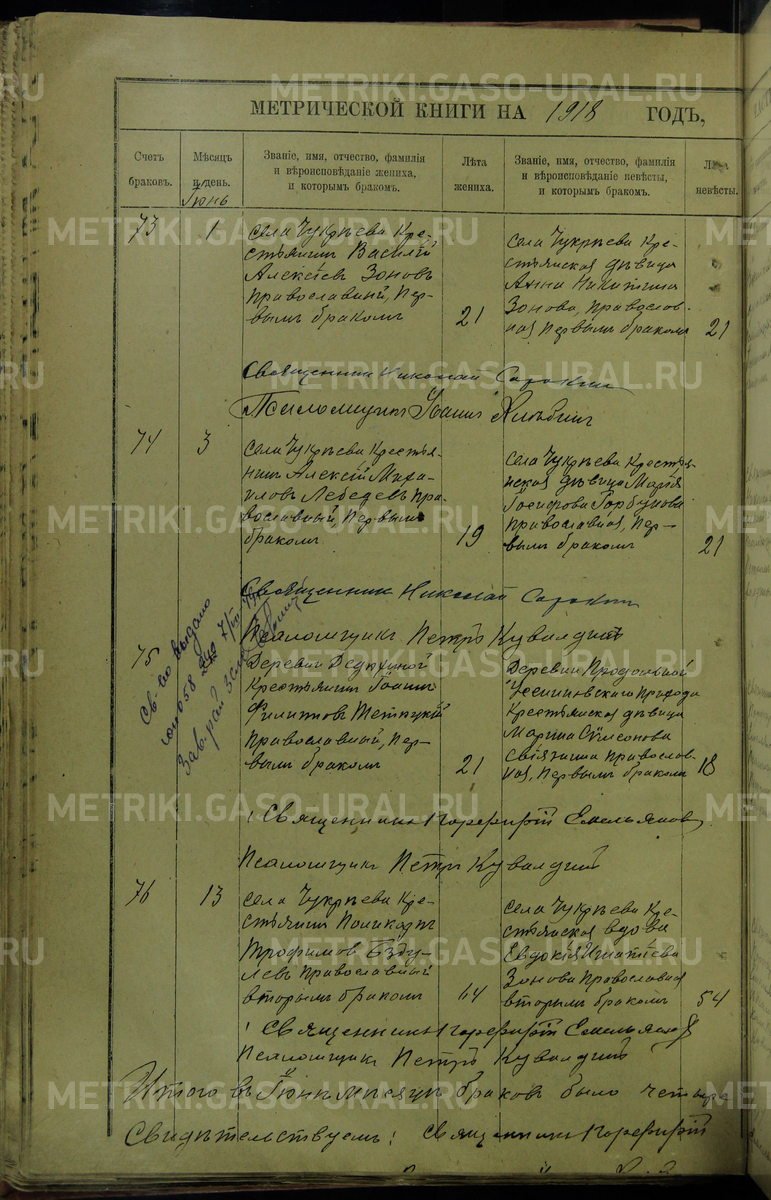 МЕТРИЧЕСКОЙ КНИГИ НА 1918 ГОДЪ,
Счетъ браковъ.
Мѣсяцъ и день.
Іюнь
Званіе, имя, отчество, фамилія и вѣроисповѣданіе жениха, и которымъ бракомъ.
Лѣта жениха.
Званіе, имя, отчество, фамилія и вѣроисповѣданіе невѣсты, и которымъ бракомъ.
Лѣта невѣсты.
73
1
Села Чукрѣева Кре-
стьянинъ Василій
Алексѣев Зоновъ
Православный, Пер-
вымъ бракомъ
21
Села Чукрѣева Кре-
стьянская дѣвица
Анна Никитина
Зонова, Православ-
ная, Первымъ бракомъ
21
Священникъ Николай Сорокин
Псаломщикъ Іоаннъ
74
3
Села Чукрѣева Крестья-
нинъ Алексѣй Миха-
иловъ Лебедевъ Пра-
вославный, Первымъ
бракомъ
19
Села Чукрѣева Крестья-
нская дѣвица Марія
Іосифова Горбунова
Православная, Пер-
вымъ бракомъ
21
Священник Николай Сорокин
Псаломщикъ Петръ Кувалдинъ
Св-во выдано
75
Деревни
Крестьянинъ Іоаннъ
Филиповъ
Православный, Пер-
вымъ бракомъ
21
Деревни Продольной
Прихода
Крестьянская дѣвица
Марина Симеонова
Православ-
ная, Первымъ бракомъ
18
Священникъ Порфирій Емельянов
Псаломщикъ Петръ Кувалдинъ
76
13
Села Чукрѣева Кре-
стьянинъ Поликарпъ
Трофимов
Православный
вторымъ бракомъ
64
Села Чукрѣева Кре-
стьянская вдова
Евдокія Игнатіева
Зонова Православная
вторымъ бракомъ
54
Священникъ Порфирій Емельянов
Псаломщикъ Петръ Кувалдинъ
Итого въ Іюнѣ мѣсяцѣ браковъ было четыре
Свидѣтельствуемъ: Священникъ Порфирій
METRIKI.GASO-URAL.RU